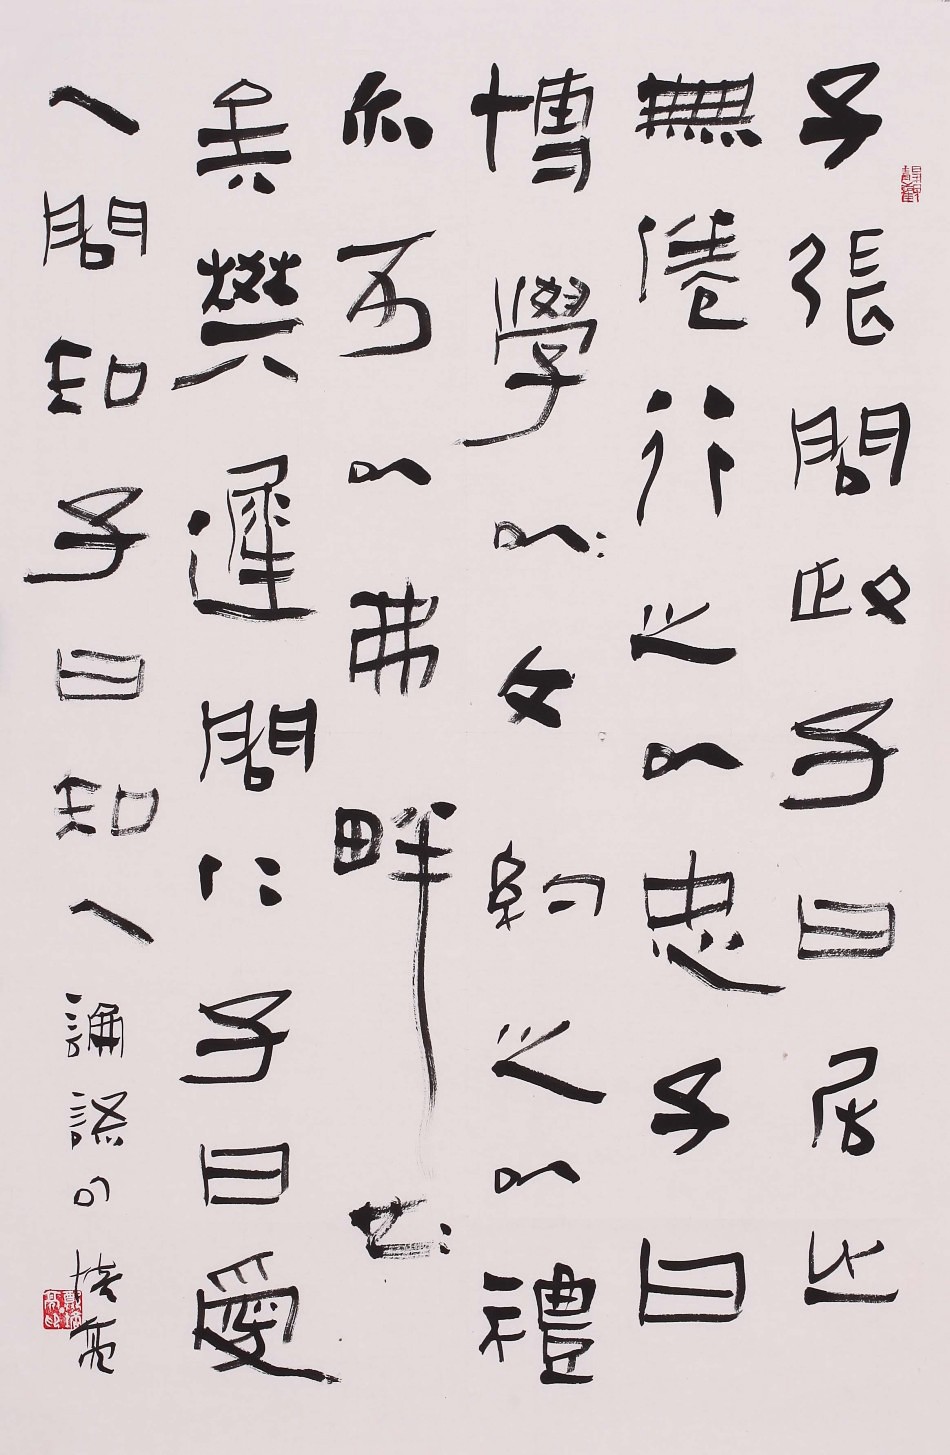 子張問政子曰居之
無倦行之以忠子曰
博學以文約之以禮
亦可以弗畔
矣樊遲問仁子曰愛
人問知子曰知人 論語句 培亮